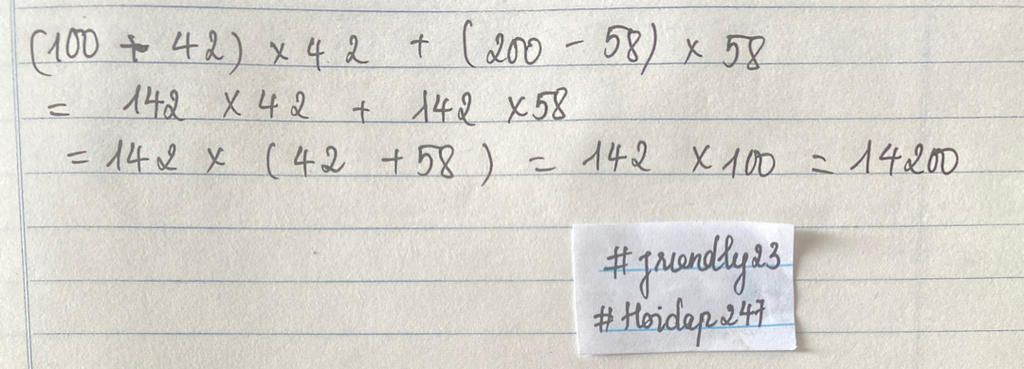 (100 + 42) × 42 + (200 - 58) × 58
= 142 × 42 + 142 × 58
= 142 × (42 + 58) = 142 × 100 = 14200
#friendly23
#Hoidap247